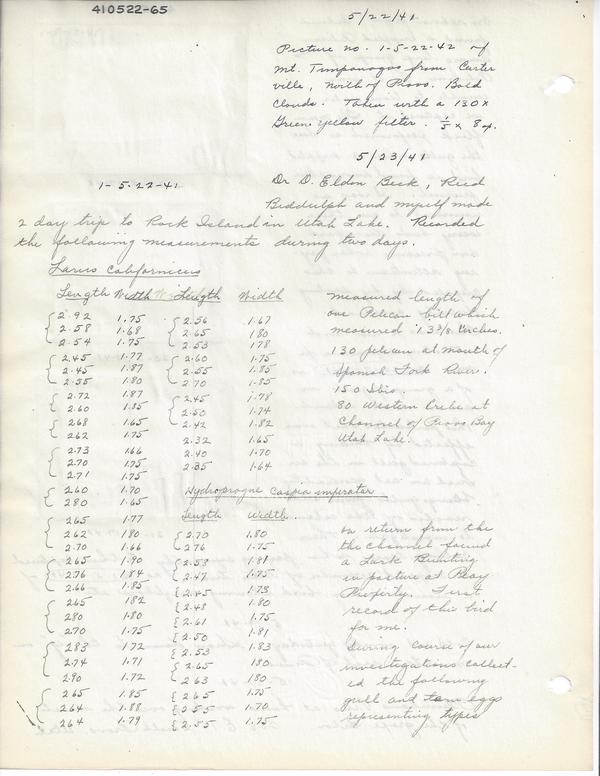 410522-65
5/22/41
Picture no. 1-5-22-42 of
Mt. Timpanogos from Carter
ville, North of Provo. Bold
Clouds. Taken with a 130x
Green-yellow filter. 1/5 x 8
5/23/41
1-5-22-41
Dr D. Eldon Beck, Reed
Biddulph and myself made
2 day trip to Rock Island in Utah Lake. Recorded
the following measurements during two days.
Larus californicus
Length Width Length Width
2.92 1.75 2.56 1.67
2.58 1.68 2.65 180
2.54 1.75 2.53 178
2.45 1.77 2.60 1.75
2.45 1.87 2.55 1.85
2.55 1.80 2.70 1.85
2.72 1.87 2.45 1.78
2.60 1.85 2.50 1.74
268 1.65 2.42 1.82
262 1.75 2.32 1.65
2.73 166 2.40 1.70
2.70 1.75 2.35 1.64
2.71 1.75
2.60 1.70
280 1.65
Hydroprogne caspia imperator
Length Width
265 1.77
262 180 2.70 1.80
2.70 1.66 276 1.75
265 1.90 2.58 1.81
2.76 184 2.47 1.75
2.66 1.85 2.45 1.73
265 182 2.48 1.80
280 1.80 2.61 1.75
270 1.75 2.50 1.81
283 172 2.53 1.83
2.74 1.71 2.65 180
280 1.72 263 180
265 1.85 265 1.75
264 1.88 2.55 1.70
264 1.79 2.55 1.75
measured length of
one Pelican bill which
measured 13 3/8 inches.
130 pelican at mouth of
Spanish Fork River.
150 Ibis.
80 Western Grebe at
Channel of Provo Bay
Utah Lake.
On return from the
the channel found
a Lark Bunting
in pasture at Peay
Property. First
record of this bird
for me.
During course of our
investigations collect-
ed the following
gull and tern eggs
representing types